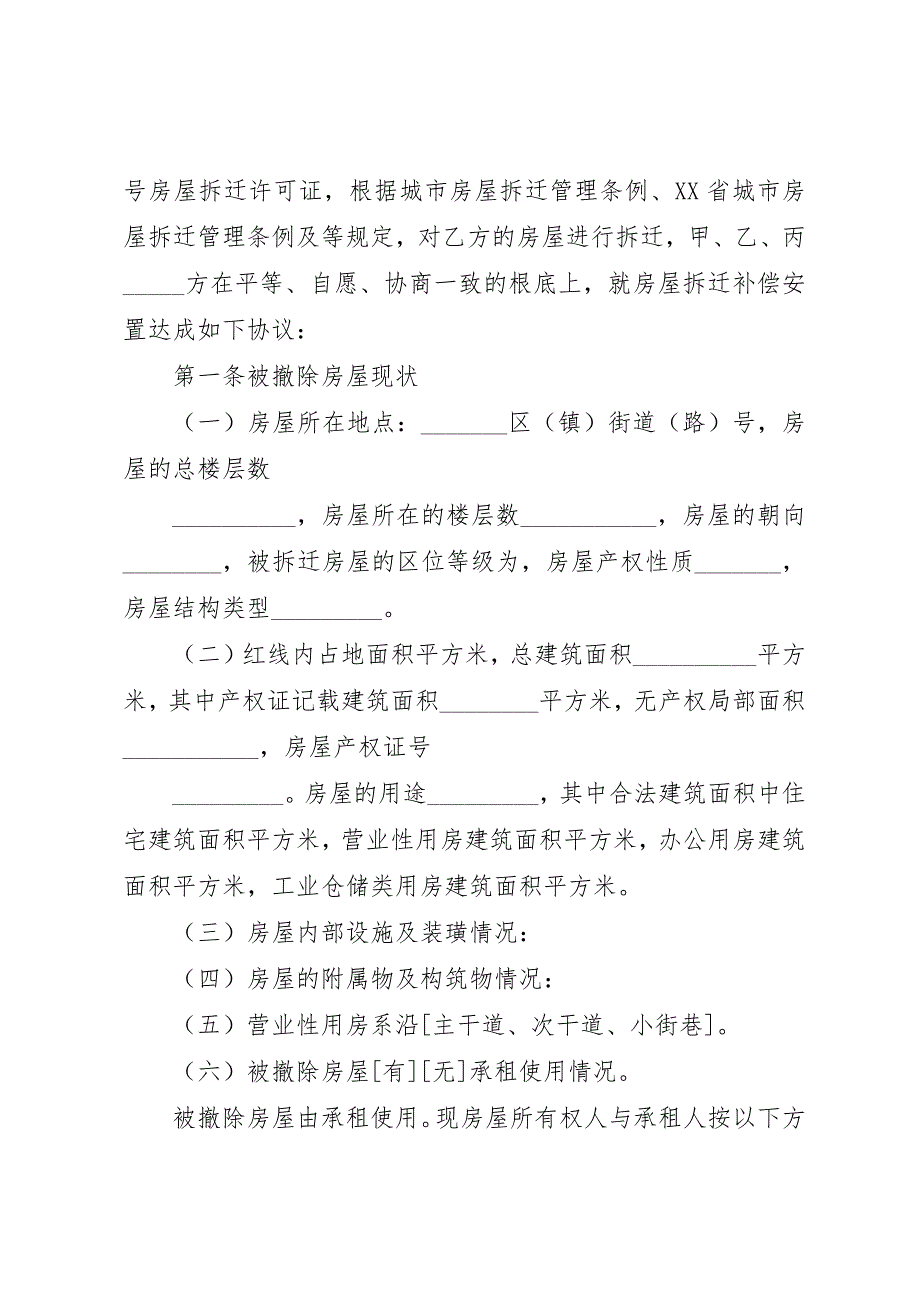 号房屋拆迁许可证，根据城市房屋拆迁管理条例、XX 省城市房
屋拆迁管理条例及等规定，对乙方的房屋进行拆迁，甲、乙、丙
_____方在平等、自愿、协商一致的根底上，就房屋拆迁补偿安
置达成如下协议：
第一条被撤除房屋现状
（一）房屋所在地点：_______区（镇）街道（路）号，房
屋的总楼层数
__________，房屋所在的楼层数___________，房屋的朝向
________，被拆迁房屋的区位等级为，房屋产权性质_______，
房屋结构类型_________。
（二）红线内占地面积平方米，总建筑面积__________平方
米，其中产权证记载建筑面积________平方米，无产权局部面积
___________，房屋产权证号
_________。房屋的用途_________，其中合法建筑面积中住
宅建筑面积平方米，营业性用房建筑面积平方米，办公用房建筑
面积平方米，工业仓储类用房建筑面积平方米。
（三）房屋内部设施及装璜情况：
（四）房屋的附属物及构筑物情况：
（五）营业性用房系沿[主干道、次干道、小街巷]。
（六）被撤除房屋[有][无]承租使用情况。
被撤除房屋由承租使用。现房屋所有权人与承租人按以下方